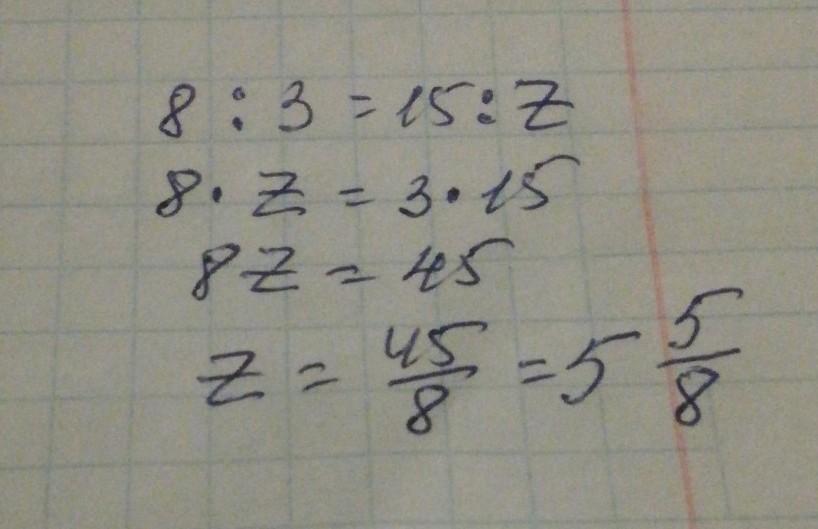 8 : 3 = 15 : z
8 · z = 3 · 15
8z = 45
z = 45/8 = 5 5/8